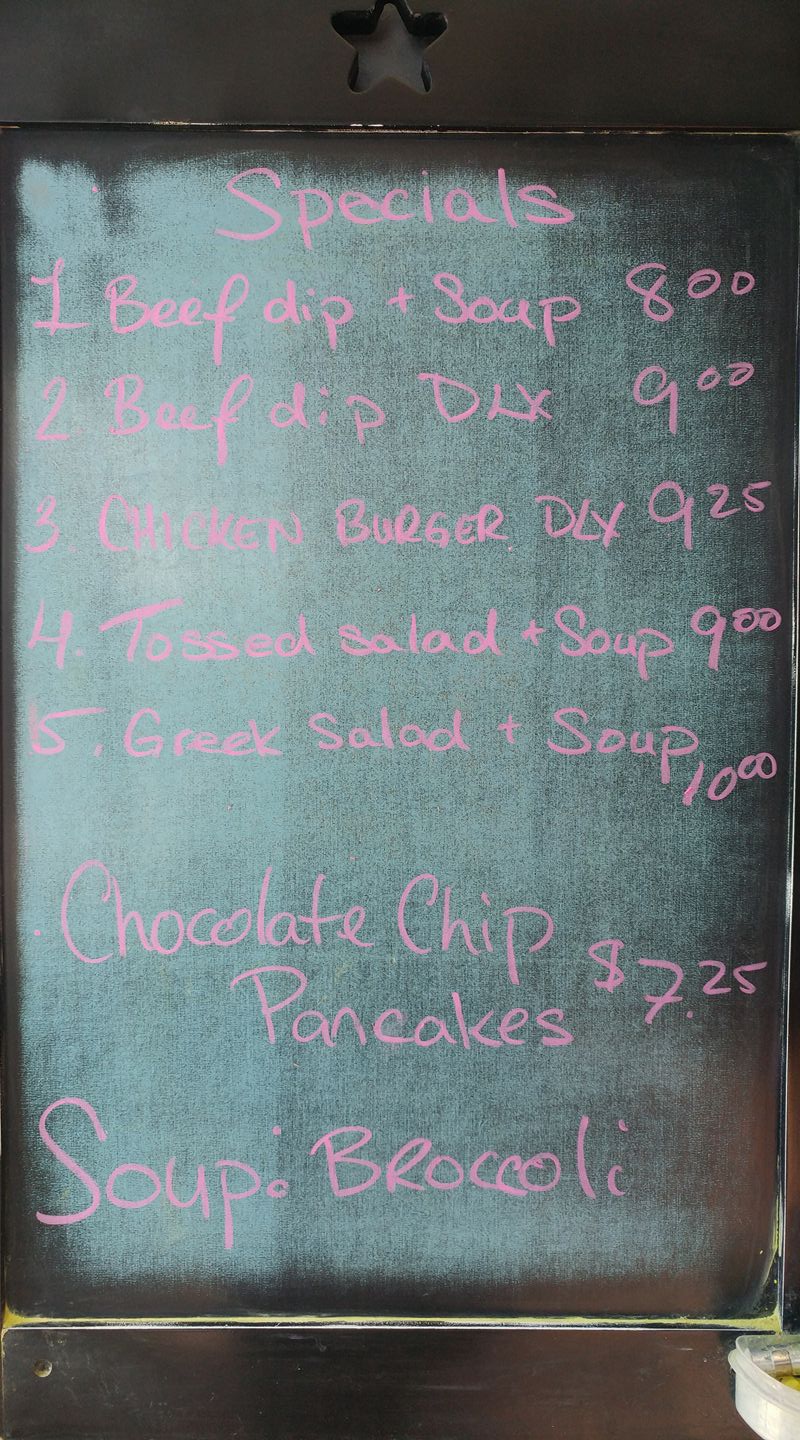 Specials
1 Beef dip + Soup 8 00
2. Beef dip DLX 9 00
3. CHICKEN BURGER DLX 9 25
4. Tossed salad + Soup 9 00
5. Greek Salad + Soup
10 00
Chocolate Chip
Pancakes $7.25
Soup: Broccoli